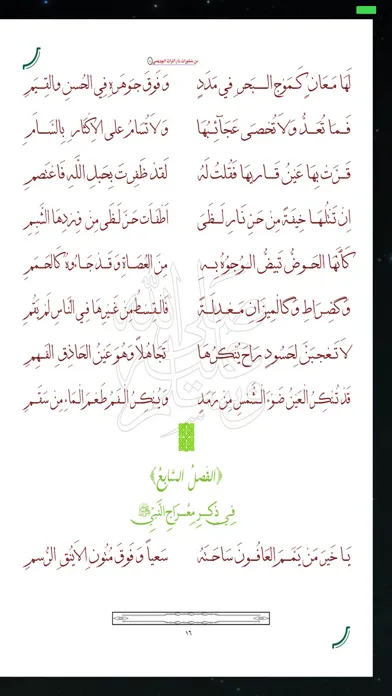 من منشورات دار التراث البوديلمي
لَهَا مَعَانٍ كَمَوْجِ الْبَحْرِ فِي مَدَدٍ وَفَوْقَ جَوْهَرِهِ فِي الْحُسْنِ وَالْقِيَمِ
فَمَا تُعَدُّ وَلَا تُحْصَى عَجَائِبُهَا وَلَا تُسَامُ عَلَى الْإِكْثَارِ بِالسَّأَمِ
قَرَّتْ بِهَا عَيْنُ قَارِيهَا فَقُلْتُ لَهُ لَقَدْ ظَفِرْتَ بِحَبْلِ اللَّهِ فَاعْتَصِمِ
إِنْ تَتْلُهَا خِيفَةً مِنْ حَرِّ نَارِ لَظَى أَطْفَأْتَ حَرَّ لَظَى مِنْ وِرْدِهَا الشَّبِمِ
كَأَنَّهَا الْحَوْضُ تَبْيَضُّ الْوُجُوهُ بِهِ مِنَ الْعُصَاةِ وَقَدْ جَاءُوهُ كَالْحُمَمِ
وَكَالصِّرَاطِ وَكَالْمِيزَانِ مَعْدِلَةً فَالْقِسْطُ مِنْ غَيْرِهَا فِي النَّاسِ لَمْ يَقُمِ
لَا تَعْجَبَنْ لِحَسُودٍ رَاحَ يُنْكِرُهَا تَجَاهُلًا وَهْوَ عَيْنُ الْحَاذِقِ الْفَهِمِ
قَدْ تُنْكِرُ الْعَيْنُ ضَوْءَ الشَّمْسِ مِنْ رَمَدٍ وَيُنْكِرُ الْفَمُ طَعْمَ الْمَاءِ مِنْ سَقَمِ
﴿الفَصْلُ السَّابِعُ﴾
فِي ذِكْرِ مِعْرَاجِ النَّبِيِّ ﷺ
يَا خَيْرَ مَنْ يَمَّمَ الْعَافُونَ سَاحَتَهُ سَعْيًا وَفَوْقَ مُتُونِ الْأَيْنُقِ الرُّسُمِ
١٦